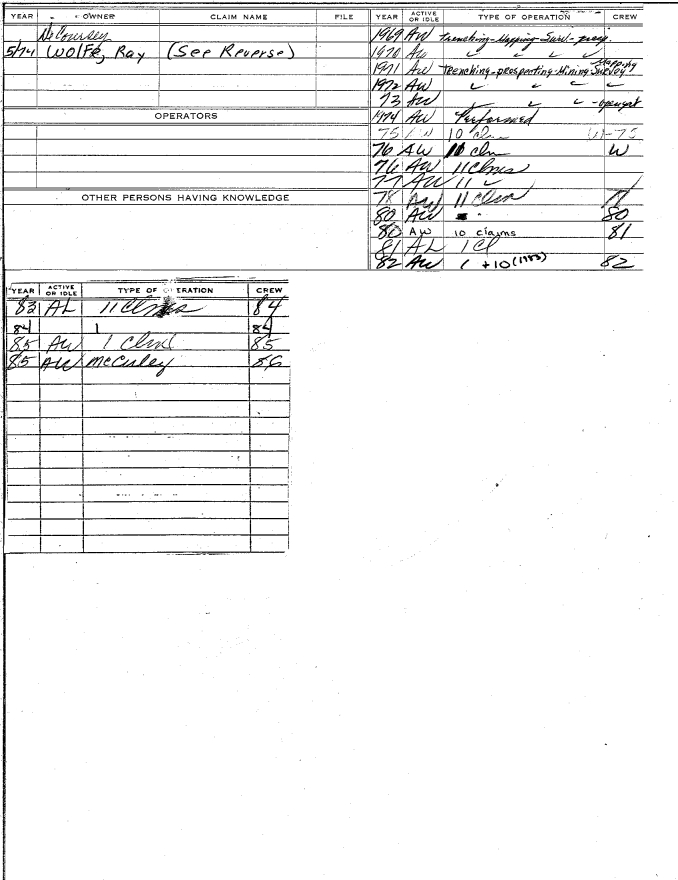 YEAR OWNER CLAIM NAME FILE
De Coursey
5/74 Wolfe, Ray (See Reverse)
OPERATORS
OTHER PERSONS HAVING KNOWLEDGE
YEAR ACTIVE OR IDLE TYPE OF OPERATION CREW
1969 AW Trenching-Mapping-Surv-prosp.
1970 AW
Mapping
1971 AW Trenching-prospecting-Mining-Survey
1972 AW
73 AW
1974 AW Performed
75 AW 10 clm W-75
76 AW 10 clm W
76 AW 11 Clms
77 AW 11
78 AW 11 Clm
80 AW 80
80 AW 10 claims 81
81 AL 1 Cl
82 AW 1 +10 (1983) 82
YEAR ACTIVE OR IDLE TYPE OF OPERATION CREW
83 AL 11 Clms 84
84 1 84
85 AW 1 Clm 85
85 AW McCurley 86